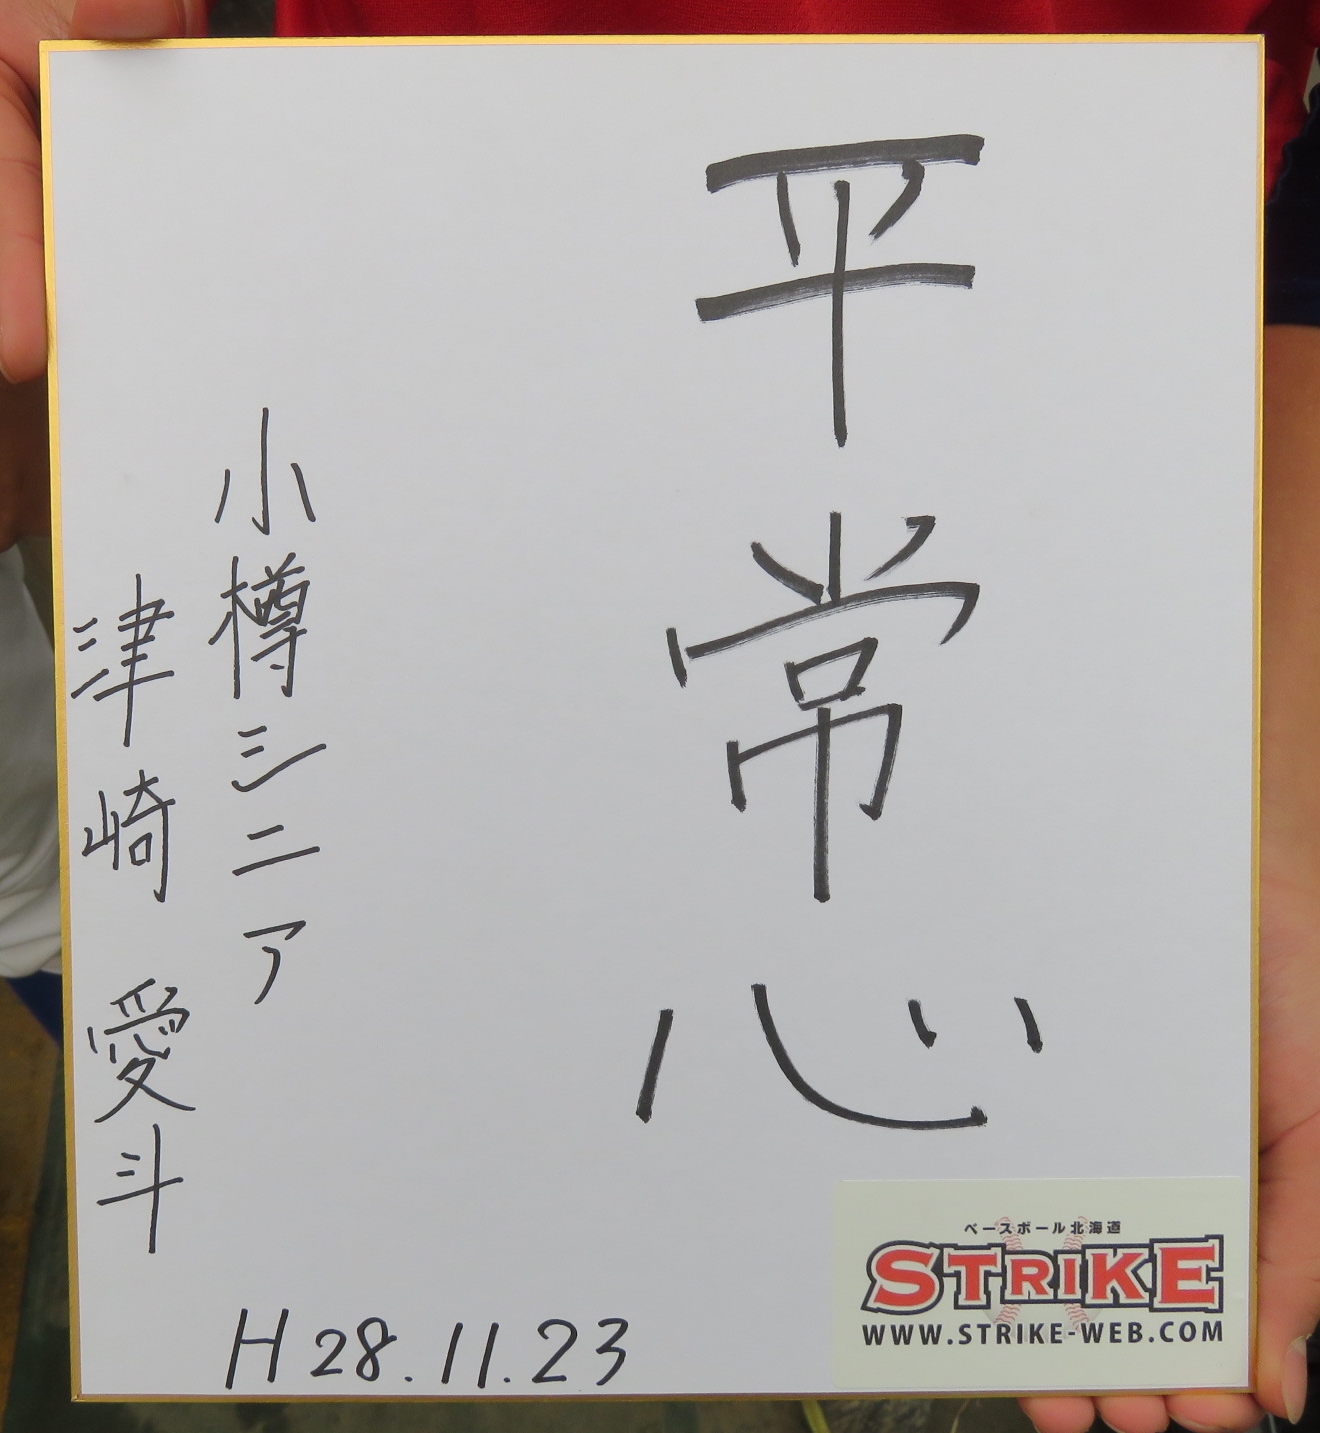 平常心
小樽シニア
津崎 愛斗
H28.11.23
ベースボール北海道
STRIKE
WWW.STRIKE-WEB.COM